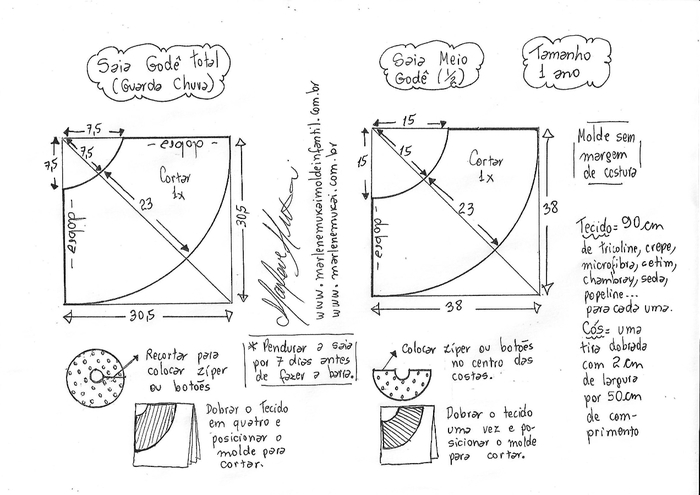 Saia Godê total
(Guarda Chuva)
Saia Meio
Godê (½)
Tamanho
1 ano
7,5
7,5
7,5
- dobra -
Cortar
1x
23
- dobra -
30,5
30,5
www.marlenemukaimoldeinfantil.com.br
www.marlenemukai.com.br
15
15
15
Cortar
1x
23
- dobra -
38
38
Molde sem
margem
de costura
Tecido= 90 cm
de tricoline, crepe,
microfibra, cetim,
chambray, seda,
popeline...
para cada uma.
Cós= uma
tira dobrada
com 2 cm
de largura
por 50 cm
de com-
primento
Recortar para
colocar zíper
ou botões
* Pendurar a saia
por 7 dias antes
de fazer a barra.
Colocar zíper ou botões
no centro das
costas.
Dobrar o Tecido
em quatro e
posicionar o
molde para
cortar.
Dobrar o tecido
uma vez e po-
sicionar o molde
para cortar.